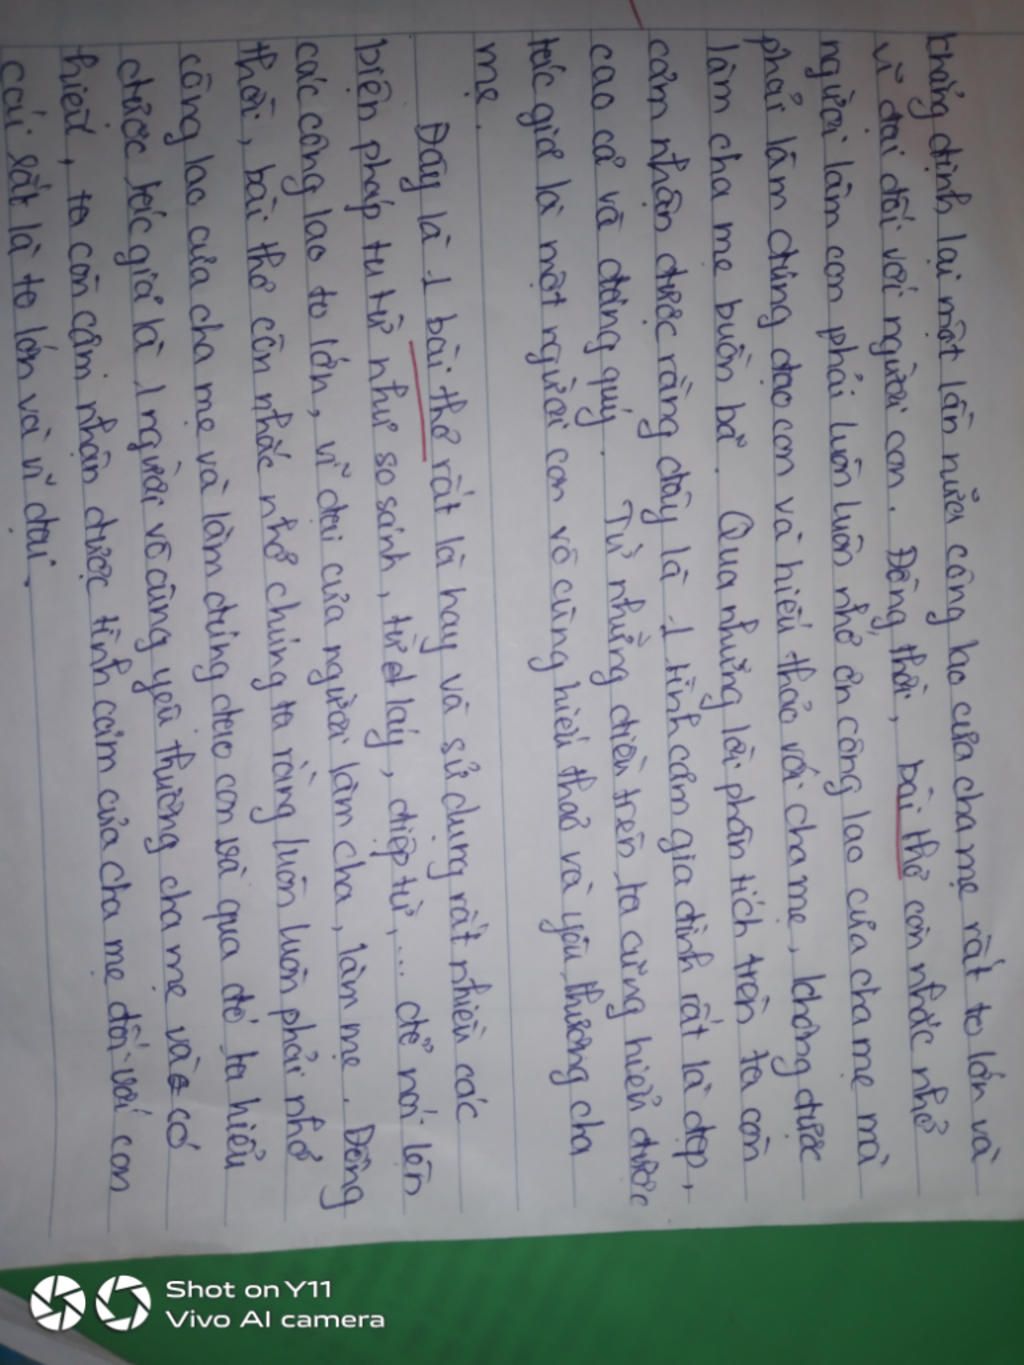 khẳng định lại một lần nữa công lao của cha mẹ rất to lớn và
vĩ đại đối với người con. Đồng thời, bài thơ còn nhắc nhở
người làm con phải luôn luôn nhớ ơn công lao của cha mẹ mà
phải làm đúng đạo con và hiếu thảo với cha mẹ, không được
làm cha mẹ buồn bã. Qua những lời phân tích trên ta còn
cảm nhận được rằng đây là 1 tình cảm gia đình rất là đẹp,
cao cả và đáng quý. Từ những điều trên, ta cũng hiểu được
tác giả là một người con vô cùng hiếu thảo và yêu thương cha
mẹ.
Đây là 1 bài thơ rất là hay và sử dụng rất nhiều các
biện pháp tu từ như so sánh, từ láy, điệp từ,... để nói lên
các công lao to lớn, vĩ đại của người làm cha, làm mẹ. Đồng
thời, bài thơ còn nhắc nhở chúng ta rằng luôn luôn phải nhớ
công lao của cha mẹ và làm đúng đạo con và qua đó, ta hiểu
được tác giả là 1 người vô cùng yêu thương cha mẹ và có
hiếu, ta còn cảm nhận được tình cảm của cha mẹ đối với con
cái rất là to lớn và vĩ đại.
Shot on Y11
Vivo AI camera